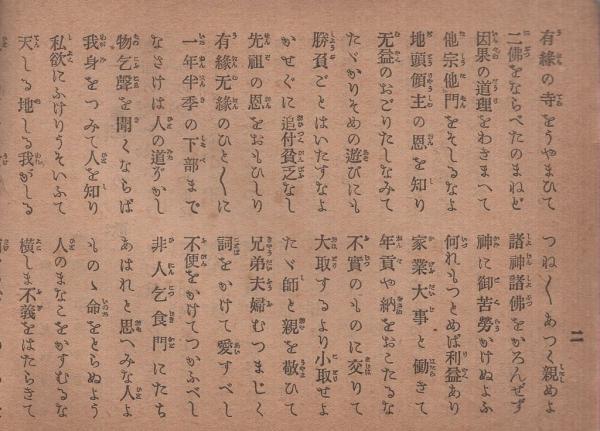 有緣の寺をうやまひて　つね〱あつく親めよ
二佛をならべたのまねど　諸神諸佛をかろんせず
因果の道理をわきまへて　神に御苦勞かけぬよふ
他宗他門をそしるなよ　何れもつとめば利益あり
地頭領主の恩を知り　家業大事と働きて
无益のおごりたしなみて　年貢や納をおこたるな
たゞかりそめの遊びにも　不實のものに交りて
勝負ごとはいたすなよ　大取するより小取せよ
かせぐに追付貧乏なし　たゞ師と親を敬ひて
先祖の恩をおもひしり　兄弟夫婦むつまじく
有緣无緣のひと〲に　詞をかけて愛すべし
一年半季の下部まで　不便をかけてつかふべし
なさけは人の道ぞかし　非人乞食門にたち
物乞聲を聞くならば　あはれと思へみな人よ
我身をつみて人を知り　ものゝ命をとらぬよう
私欲にふけりうそいふて　人のまなこをかすむるな
天しる地しる我がしる　橫しま不義をはたらきて
二